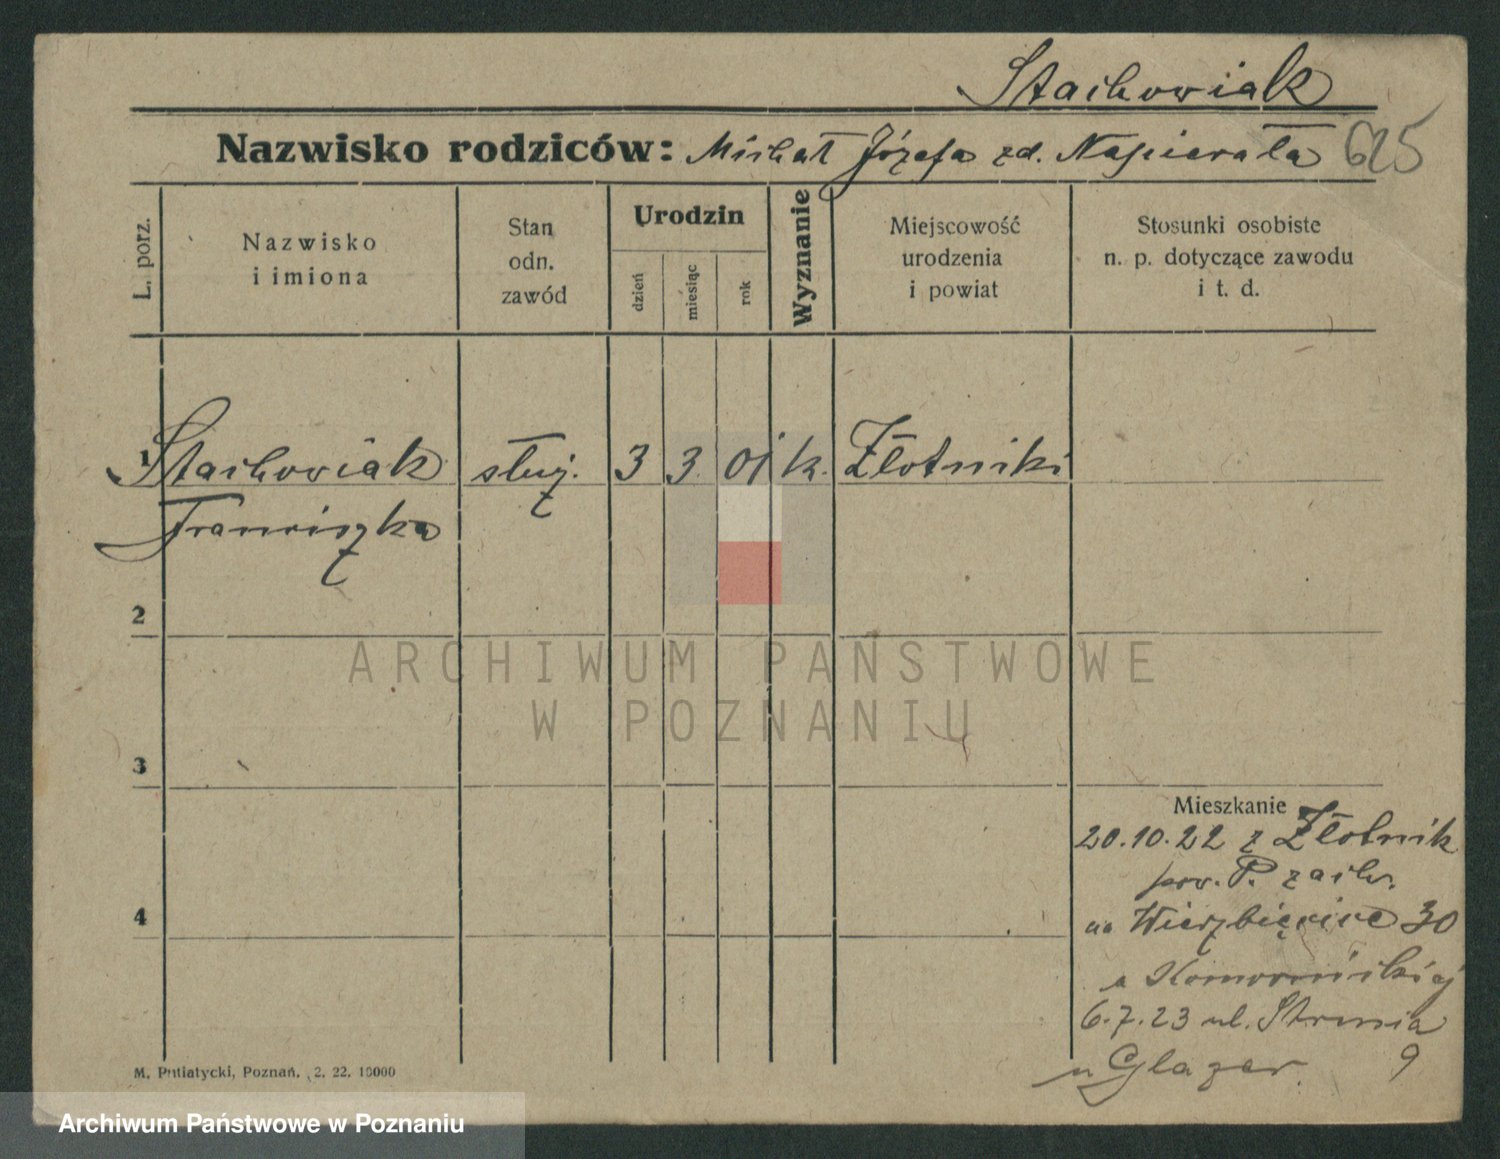 Stachowiak
Nazwisko rodziców: Michał Józefa zd. Napierała 625
L. porz.
Nazwisko
i imiona
Stan
odn.
zawód
Urodzin
dzień
miesiąc
rok
Wyznanie
Miejscowość
urodzenia
i powiat
Stosunki osobiste
n. p. dotyczące zawodu
i t. d.
1 Stachowiak służ. 3 3. 01 k. Złotniki
Franciszka
2
ARCHIWUM PAŃSTWOWE
W POZNANIU
3
Mieszkanie
20.10.22 z Złotnik
pow. P. zach.
na Wierzbięcice 30
u Komornickiej
6.7.23 ul. Strumia
9
u Glazer.
4
M. Putiatycki, Poznań, 2. 22. 10000
Archiwum Państwowe w Poznaniu